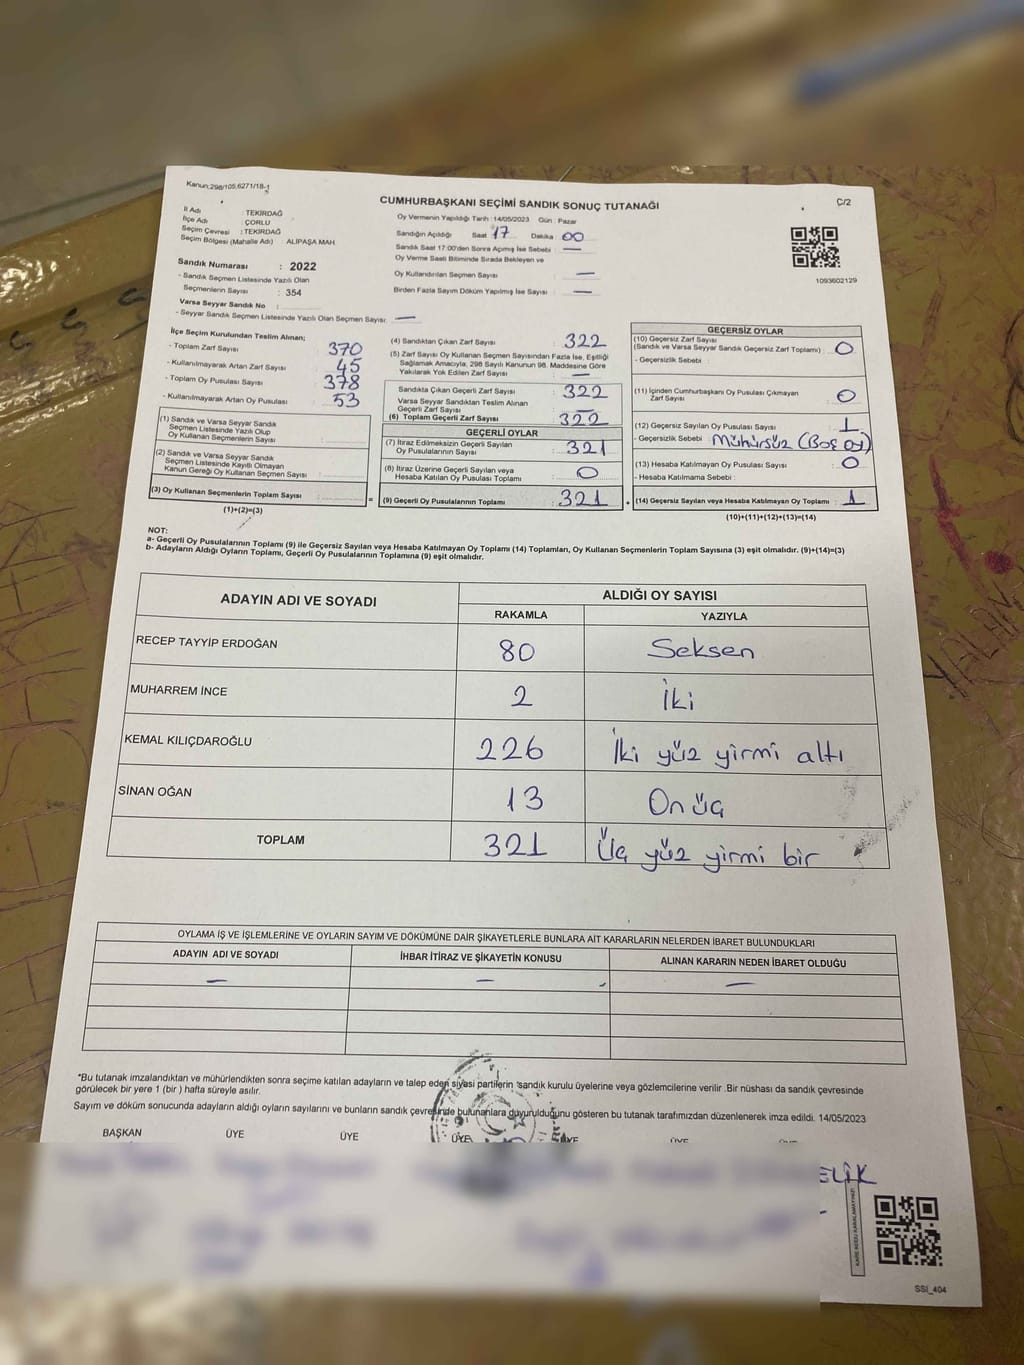 Kanun:298/105,6271/18-1
CUMHURBAŞKANI SEÇİMİ SANDIK SONUÇ TUTANAĞI
Ç/2
İl Adı : TEKİRDAĞ
İlçe Adı : ÇORLU
Seçim Çevresi : TEKİRDAĞ
Seçim Bölgesi (Mahalle Adı) : ALİPAŞA MAH.
Sandık Numarası : 2022
- Sandık Seçmen Listesinde Yazılı Olan
Seçmenlerin Sayısı : 354
Varsa Seyyar Sandık No :
- Seyyar Sandık Seçmen Listesinde Yazılı Olan Seçmen Sayısı: —
Oy Vermenin Yapıldığı Tarih :14/05/2023 Gün : Pazar
Sandığın Açıldığı Saat 17 Dakika 00
Sandık Saat 17:00'den Sonra Açımış İse Sebebi : —
Oy Verme Saati Bitiminde Sırada Bekleyen ve
Oy Kullandırılan Seçmen Sayısı : —
Birden Fazla Sayım Döküm Yapılmış İse Sayısı : —
1093602129
İlçe Seçim Kurulundan Teslim Alınan;
- Toplam Zarf Sayısı : 370
- Kullanılmayarak Artan Zarf Sayısı : 45
- Toplam Oy Pusulası Sayısı : 378
- Kullanılmayarak Artan Oy Pusulası : 53
(1) Sandık ve Varsa Seyyar Sandık
Seçmen Listesinde Yazılı Olup
Oy Kullanan Seçmenlerin Sayısı :
(2) Sandık ve Varsa Seyyar Sandık
Seçmen Listesinde Kayıtlı Olmayan
Kanun Gereği Oy Kullanan Seçmen Sayısı :
(3) Oy Kullanan Seçmenlerin Toplam Sayısı :
(1)+(2)=(3)
(4) Sandıktan Çıkan Zarf Sayısı : 322
(5) Zarf Sayısı Oy Kullanan Seçmen Sayısından Fazla İse, Eşitliği
Sağlamak Amacıyla, 298 Sayılı Kanunun 98. Maddesine Göre
Yakılarak Yok Edilen Zarf Sayısı : —
Sandıkta Çıkan Geçerli Zarf Sayısı : 322
Varsa Seyyar Sandıktan Teslim Alınan
Geçerli Zarf Sayısı : —
(6) Toplam Geçerli Zarf Sayısı : 322
GEÇERLİ OYLAR
(7) İtiraz Edilmeksizin Geçerli Sayılan
Oy Pusulalarının Sayısı : 321
(8) İtiraz Üzerine Geçerli Sayılan veya
Hesaba Katılan Oy Pusulası Toplamı : 0
= (9) Geçerli Oy Pusulalarının Toplamı : 321 +
GEÇERSİZ OYLAR
(10) Geçersiz Zarf Sayısı
(Sandık ve Varsa Seyyar Sandık Geçersiz Zarf Toplamı) : 0
- Geçersizlik Sebebi :
(11) İçinden Cumhurbaşkanı Oy Pusulası Çıkmayan
Zarf Sayısı : 0
(12) Geçersiz Sayılan Oy Pusulası Sayısı : 1
- Geçersizlik Sebebi : Mühürsüz (Boş oy)
(13) Hesaba Katılmayan Oy Pusulası Sayısı : 0
- Hesaba Katılmama Sebebi :
(14) Geçersiz Sayılan veya Hesaba Katılmayan Oy Toplamı : 1
(10)+(11)+(12)+(13)=(14)
NOT:
a- Geçerli Oy Pusulalarının Toplamı (9) ile Geçersiz Sayılan veya Hesaba Katılmayan Oy Toplamı (14) Toplamları, Oy Kullanan Seçmenlerin Toplam Sayısına (3) eşit olmalıdır. (9)+(14)=(3)
b- Adayların Aldığı Oyların Toplamı, Geçerli Oy Pusulalarının Toplamına (9) eşit olmalıdır.
ADAYIN ADI VE SOYADI ALDIĞI OY SAYISI
RAKAMLA YAZIYLA
RECEP TAYYİP ERDOĞAN 80 Seksen
MUHARREM İNCE 2 İki
KEMAL KILIÇDAROĞLU 226 İki yüz yirmi altı
SİNAN OĞAN 13 On üç
TOPLAM 321 Üç yüz yirmi bir
OYLAMA İŞ VE İŞLEMLERİNE VE OYLARIN SAYIM VE DÖKÜMÜNE DAİR ŞİKAYETLERLE BUNLARA AİT KARARLARIN NELERDEN İBARET BULUNDUKLARI
ADAYIN ADI VE SOYADI İHBAR İTİRAZ VE ŞİKAYETİN KONUSU ALINAN KARARIN NEDEN İBARET OLDUĞU
— — —
*Bu tutanak imzalandıktan ve mühürlendikten sonra seçime katılan adayların ve talep eden siyasi partilerin sandık kurulu üyelerine veya gözlemcilerine verilir .Bir nüshası da sandık çevresinde
görülecek bir yere 1 (bir ) hafta süreyle asılır.
Sayım ve döküm sonucunda adayların aldığı oyların sayılarını ve bunların sandık çevresinde bulunanlara duyurulduğunu gösteren bu tutanak tarafımızdan düzenlenerek imza edildi. 14/05/2023
BAŞKAN ÜYE ÜYE ÜYE ÜYE ÜYE
ELİK
SSI_404